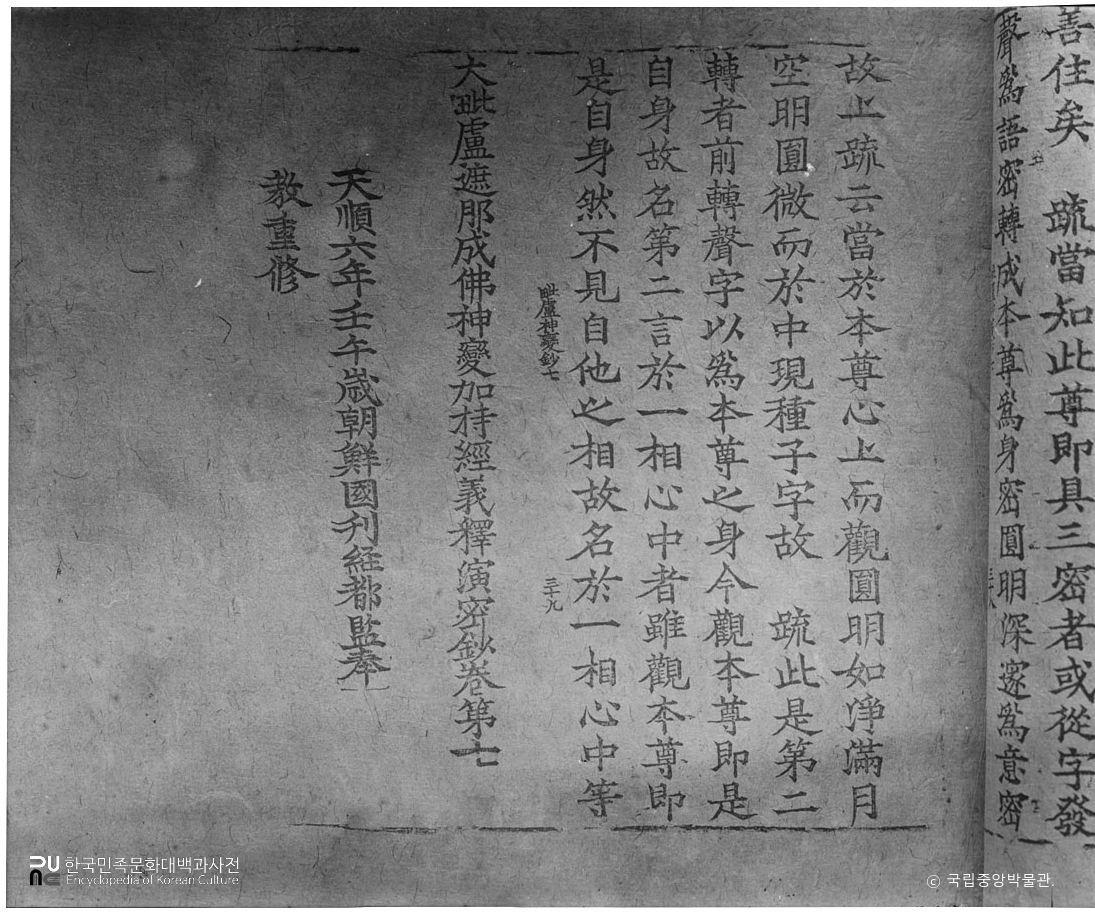 善住矣　疏當知此尊即具三密者或從字發
聲爲語密轉成本尊爲身密圓明深邃爲意密
故上疏云當於本尊心上而觀圓明如淨滿月
空明圓微而於中現種子字故　疏此是第二
轉者前轉聲字以爲本尊之身今觀本尊即是
自身故名第二言於一相心中者雖觀本尊即
是自身然不見自他之相故名於一相心中等
毗盧神變鈔七　三十九
大毗盧遮那成佛神變加持經義釋演密鈔卷第七
天順六年壬午歲朝鮮國刊経都監奉
教重修
한국민족문화대백과사전
Encyclopedia of Korean Culture
© 국립중앙박물관.